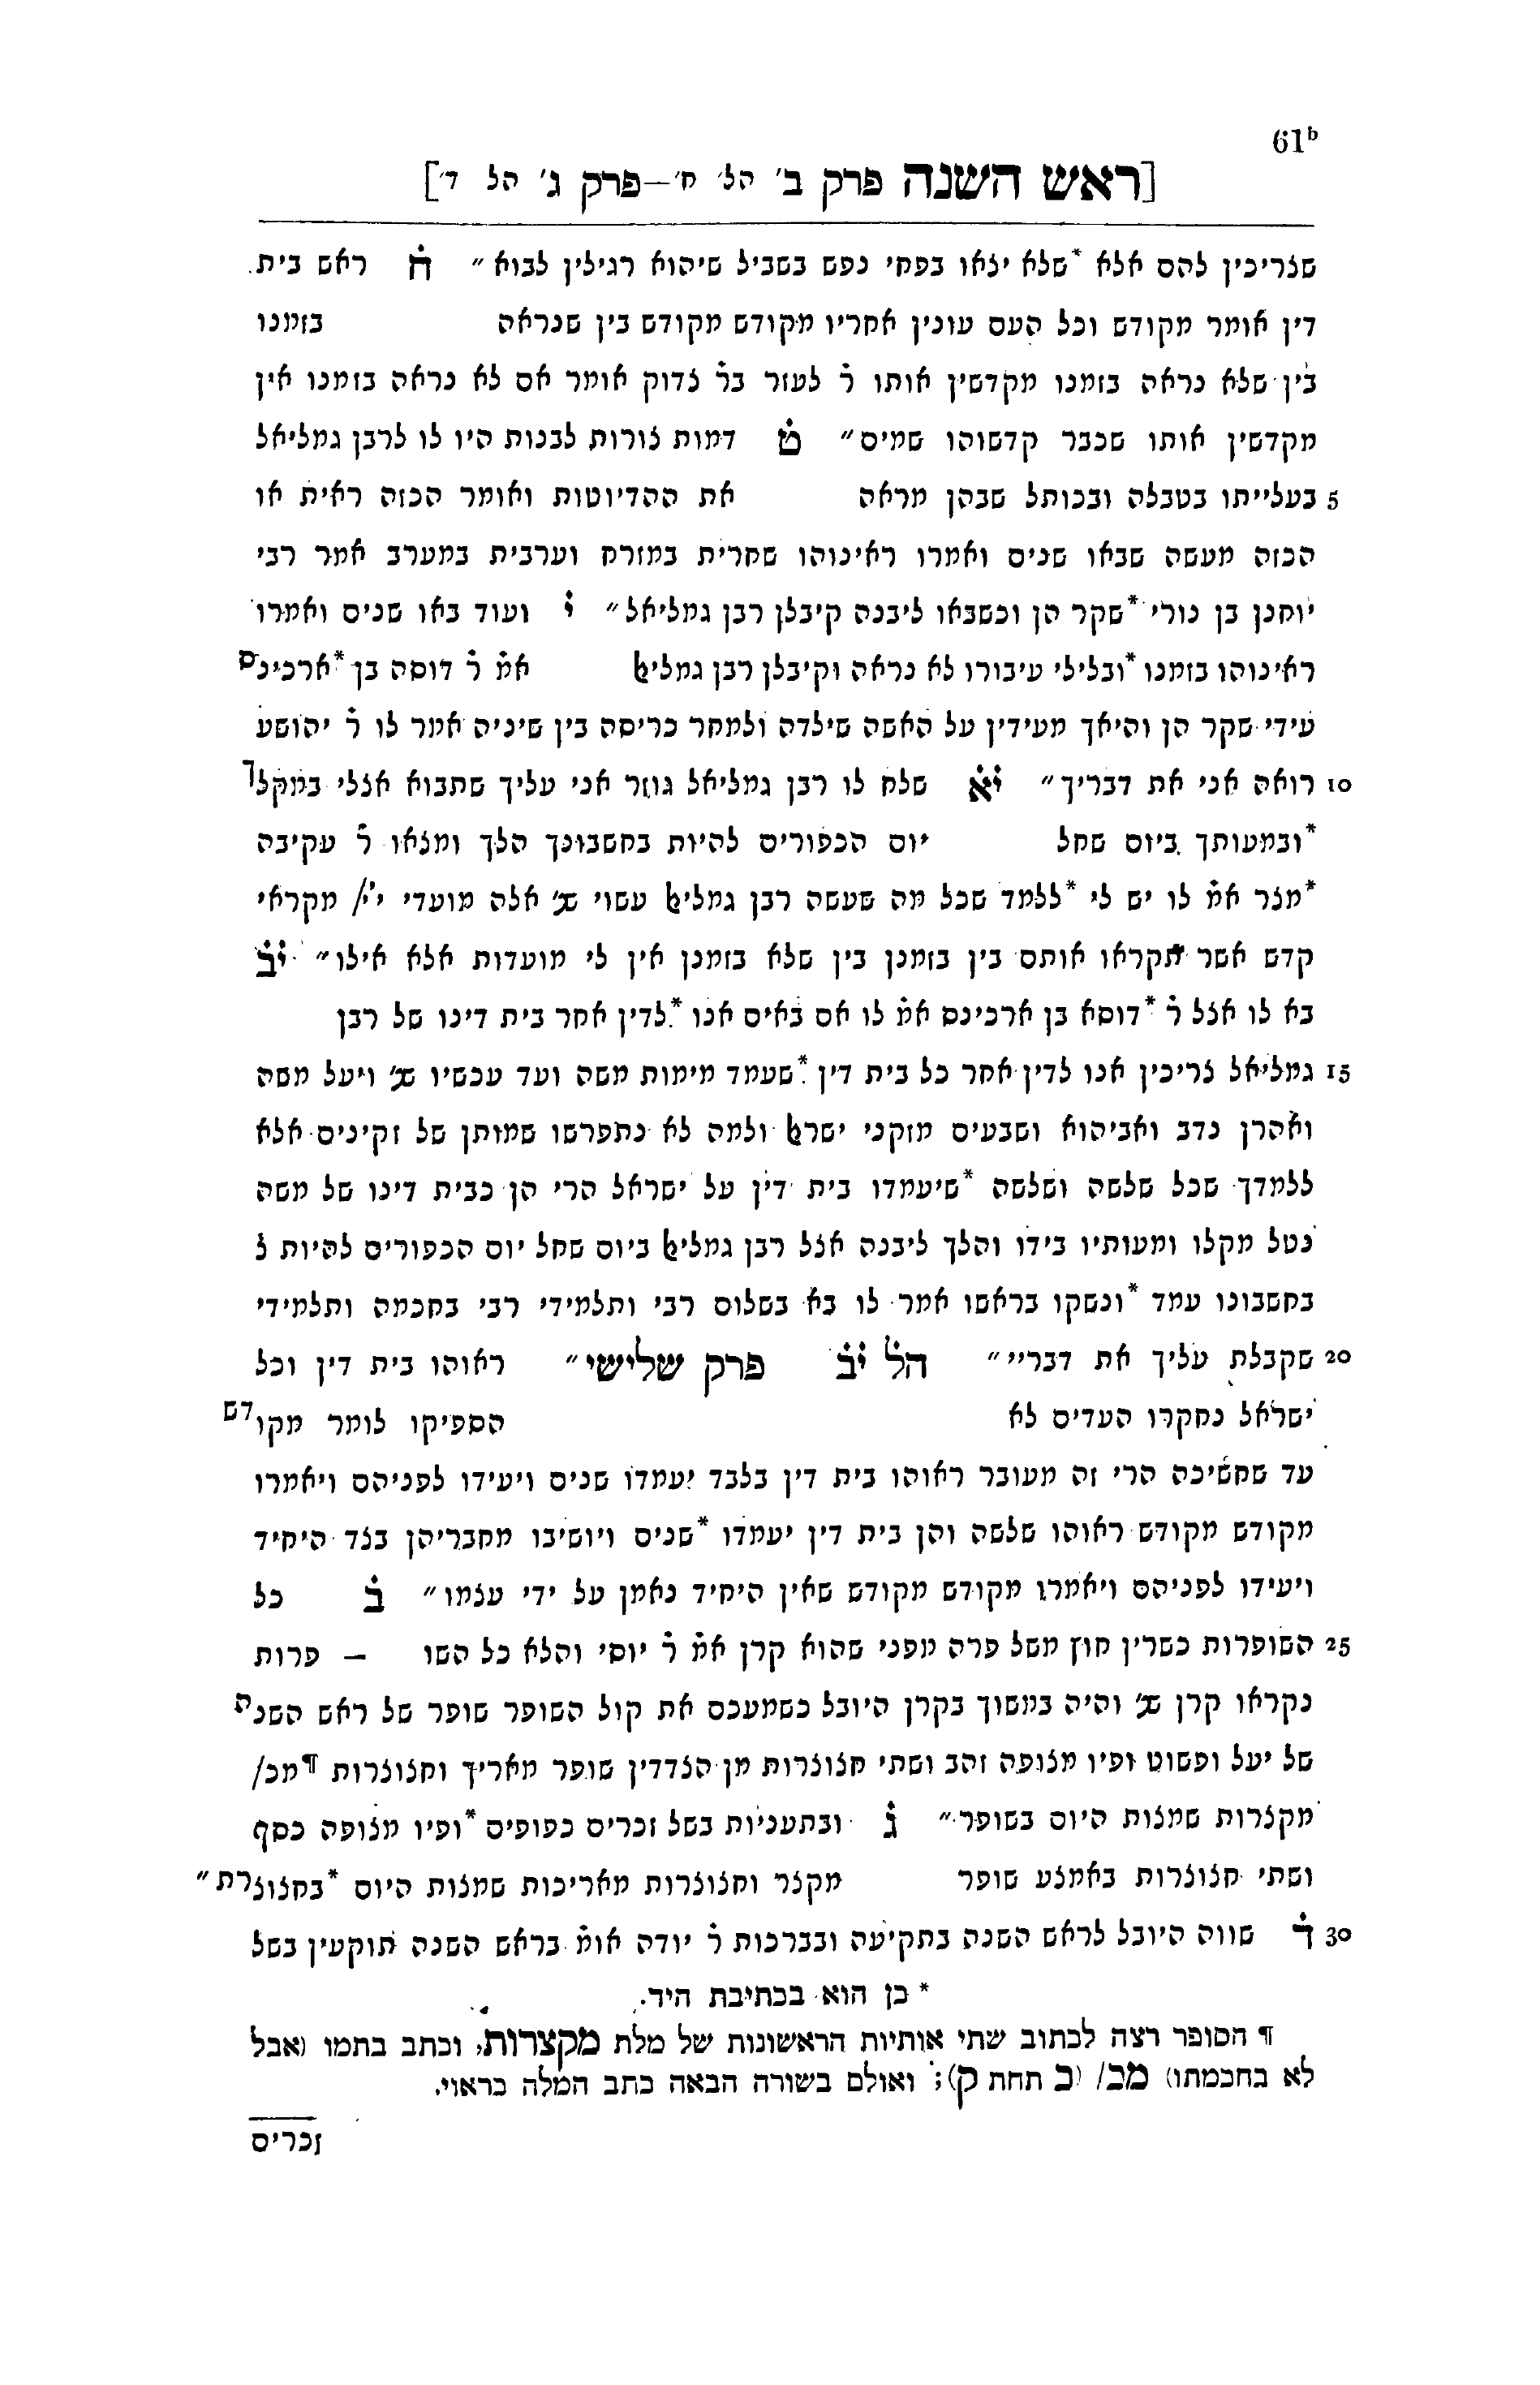 61b
[ראש השנה פרק ב' הל' ח'—פרק ג' הל ד']
שצריכין להם אלא *שלא יצאו בפחי נפש בשביל שיהוא רגילין לבוא״ ח ראש בית
דין אומר מקודש וכל העם עונין אחריו מקודש מקודש בין שנראה בזמנו
בין שלא נראה בזמנו מקדשין אותו ר̇ לעזר בר̇ צדוק אומר אם לא נראה בזמנו אין
מקדשין אותו שכבר קדשוהו שמים״ ט דמות צורות לבנות היו לו לרבן גמליאל
5 בעלייתו בטבלה ובכותל שבהן מראה את ההדיוטות ואומר הכזה ראית או
הכזה מעשה שבאו שנים ואמרו ראינוהו שחרית במזרח וערבית במערב אמר רבי
יוחנן בן נורי *שקר הן וכשבאו ליבנה קיבלן רבן גמליאל״ י ועוד באו שנים ואמרו
ראינוהו בזמנו *ובלילי עיבורו לא נראה וקיבלן רבן גמליﭏ אמ̇ ר̇ דוסה בן *ארכינס
עידי שקר הן והיאך מעידין על האשה שילדה ולמחר כריסה בין שיניה אמר לו ר̇ יהושע
10 רואה אני את דבריך״ יא שלח לו רבן גמליאל גוזר אני עליך שתבוא אצלי במקלך
*ובמעותך ביום שחל יום הכפורים להיות בחשבונך הלך ומצאו ר̇ עקיבה
*מצר אמ̇ לו יש לי *ללמד שכל מה שעשה רבן גמליﭏ עשוי שנ' אלה מועדי י'י/ מקראי
קדש אשר תקראו אותם בין בזמנן בין שלא בזמנן אין לי מועדות אלא אילו״ יב
בא לו אצל ר̇ *דוסא בן ארכינס אמ̇ לו אם באים אנו *לדין אחר בית דינו של רבן
15 גמליאל צריכין אנו לדין אחר כל בית דין *שעמד מימות משה ועד עכשיו שנ' ויעל משה
ואהרן נדב ואביהוא ושבעים מזקני ישרﭏ ולמה לא נתפרשו שמותן של זקינים אלא
ללמדך שכל שלשה ושלשה *שיעמדו בית דין על ישראל הרי הן כבית דינו של משה
נטל מקלו ומעותיו בידו והלך ליבנה אצל רבן גמליﭏ ביום שחל יום הכפורים להיות ל
בחשבונו עמד *ונשקו בראשו אמר לו בא בשלום רבי ותלמידי רבי בחכמה ותלמידי
20 שקבלת עליך את דבריי״ הל יב פרק שלישי״ ראוהו בית דין וכל
ישראל נחקרו העדים לא הספיקו לומר מקודש
עד שחשיכה הרי זה מעובר ראוהו בית דין בלבד יעמדו שנים ויעידו לפניהם ויאמרו
מקודש מקודש ראוהו שלשה והן בית דין יעמדו *שנים ויושיבו מחבריהן בצד היחיד
ויעידו לפניהם ויאמרו מקודש מקודש שאין היחיד נאמן על ידי עצמו״ ב כל
25 השופרות כשרין חוץ משל פרה מפני שהוא קרן אמ̇ ר̇ יוסי והלא כל השו — פרות
נקראו קרן שנ' והיה במשוך בקרן היובל כשמעכם את קול השופר שופר של ראש השנה
של יעל ופשוט ופיו מצופה זהב ושתי חצוצרות מן הצדדין שופר מאריך וחצוצרות ¶מכ/
מקצרות שמצות היום בשופר״ ג ובתעניות בשל זכרים כפופים *ופיו מצופה כסף
ושתי חצוצרות באמצע שופר מקצר וחצוצרות מאריכות שמצות היום *בחצוצרת״
30 ד שווה היובל לראש השנה בתקיעה ובברכות ר̇ יודה אומ̇ בראש השנה תוקעין בשל
* כן הוא בכתיבת היד.
¶ הסופר רצה לכתוב שתי אותיות הראשונות של מלת מקצרות, וכתב בתמו (אבל
לא בחכמתו) מכ/ (כ תחת ק); ואולם בשורה הבאה כתב המלה כראוי.
זכרים